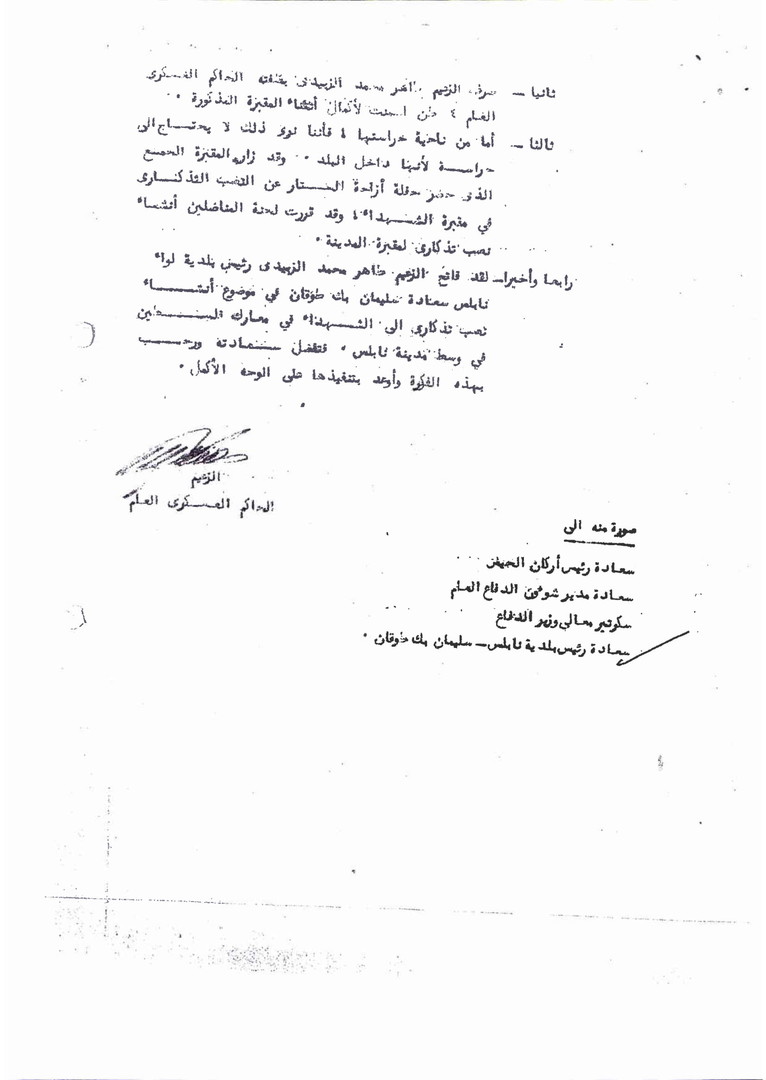 ثانيا — صرف الزعيم طاهر محمد الزبيدى بصفته الحاكم العسكرى
العام ٤ طن اسمنت لأكمال أنشاء المقبرة المذكورة .
ثالثا — أما من ناحية حراستها ، فأننا نرى ذلك لا يحتاج الى
حراسة لأنها داخل البلد . وقد زار المقبرة الجميع
الذى حضر حفلة أزاحة الستار عن النصب التذكارى
في مقبرة الشهداء ، وقد قررت لجنة المناضلين أنشاء
نصب تذكارى لمقبرة المدينة .
رابعا وأخيرا — لقد فاتح الزعيم طاهر محمد الزبيدى رئيس بلدية لواء
نابلس سعادة سليمان بك طوقان في موضوع أنشاء
نصب تذكارى الى الشهداء في معارك فلسطين
في وسط مدينة نابلس . فتفضل سعادته ورحب
بهذه الفكرة وأوعد بتنفيذها على الوجه الأكمل .
الزعيم
الحاكم العسكرى العام
صورة منه الى
سعادة رئيس أركان الجيش
سعادة مدير شوئون الدفاع العام
سكرتير معالي وزير الدفاع
سعادة رئيس بلدية نابلس — سليمان بك طوقان .